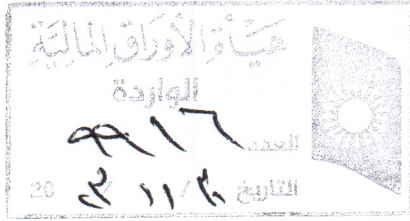 هيئة الأوراق المالية
الواردة
العدد ٩٩١٦
التاريخ / / 20